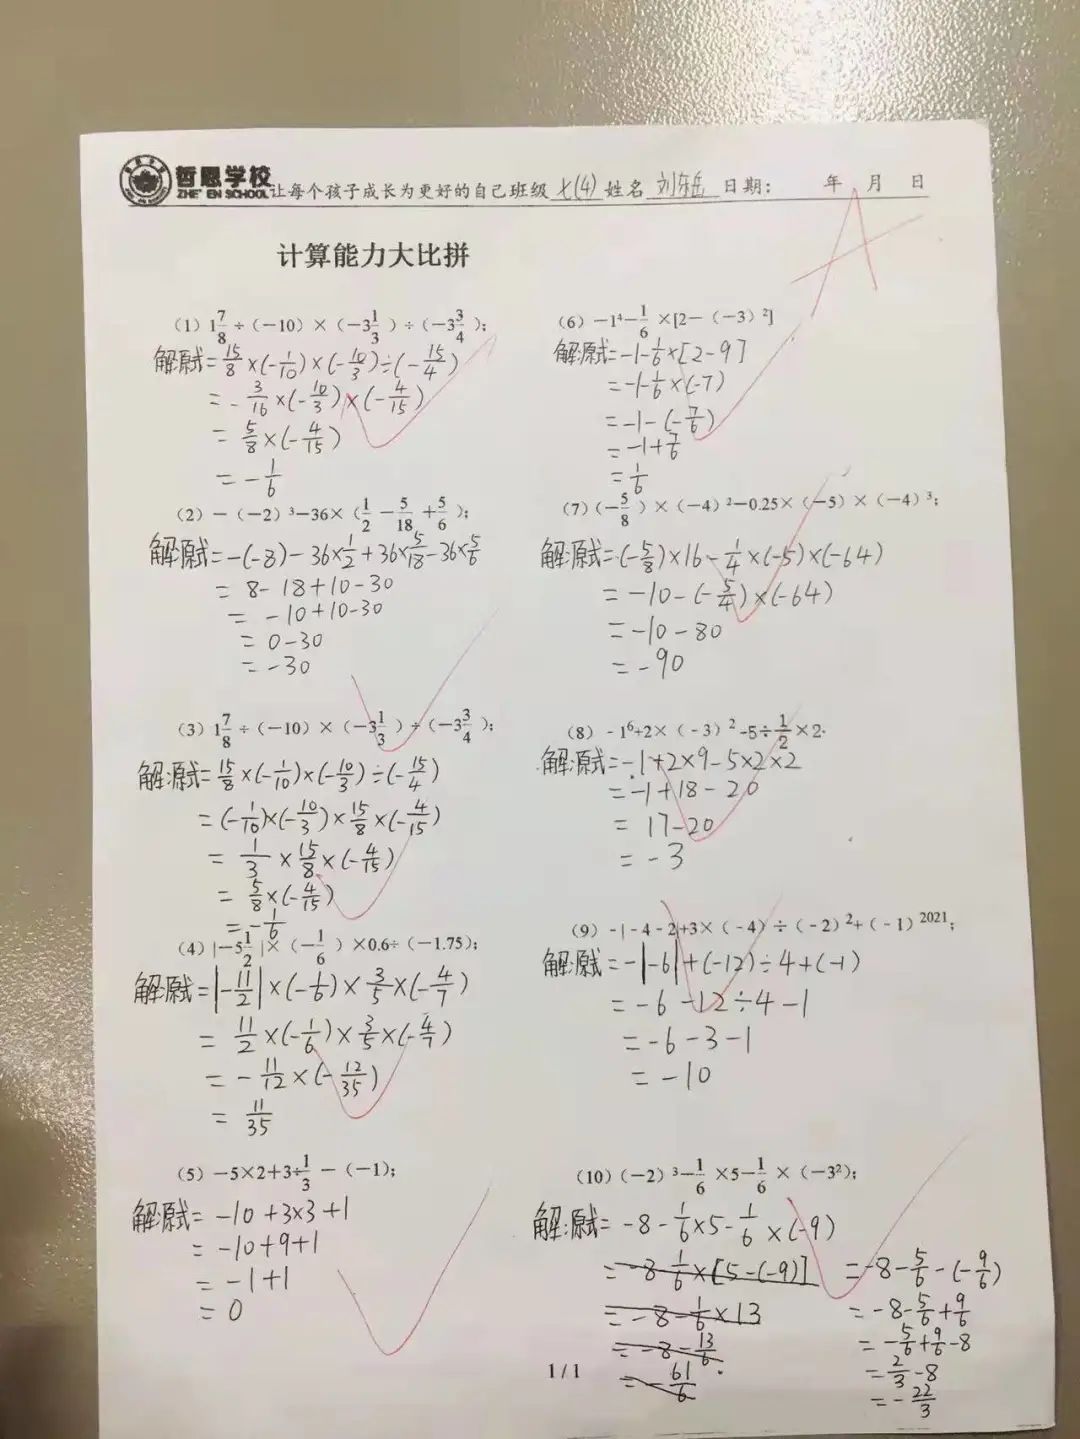 哲恩学校
ZHE' EN SCHOOL 让每个孩子成长为更好的自己 班级 七(4) 姓名 日期: 年 月 日
A
计算能力大比拼
(1) 1 7/8 ÷ (−10) × (−3 1/3) ÷ (−3 3/4);
解:原式= 15/8 ×(-1/10)×(-10/3)÷(-15/4)
= - 3/16 ×(-10/3)×(-4/15)
= 5/8 ×(-4/15)
= - 1/6
(2) − (−2) ³−36× (1/2 − 5/18 + 5/6);
解:原式= -(-8) - 36×1/2 + 36×5/18 - 36×5/6
= 8- 18+10-30
= -10+10-30
= 0-30
= -30
(3) 1 7/8 ÷ (−10) × (−3 1/3) ÷ (−3 3/4);
解:原式= 15/8 ×(-1/10)×(-10/3)÷(-15/4)
= (-1/10)×(-10/3)×15/8×(-4/15)
= 1/3 × 15/8 × (-4/15)
= 5/8 ×(-4/15)
= - 1/6
(4) |−5 1/2 |× (−1/6) ×0.6÷ (−1.75);
解:原式= |-11/2| ×(-1/6)× 3/5 ×(-4/7)
= 11/2 ×(-1/6)× 3/5 ×(-4/7)
= - 11/12 ×(-12/35)
= 11/35
(5) −5×2+3÷1/3 − (−1);
解:原式= -10 +3×3+1
= -10+9+1
= -1+1
= 0
(6) −1⁴− 1/6 ×[2− (−3) ²]
解:原式= -1-1/6×[2-9]
= -1-1/6×(-7)
= -1-(-7/6)
= -1+7/6
= 1/6
(7) (−5/8) × (−4) ²−0.25× (−5) × (−4) ³;
解:原式= (-5/8)×16-1/4×(-5)×(-64)
= -10-(-5/4)×(-64)
= -10-80
= -90
(8) -1⁶+2× (-3) ² -5÷ 1/2 ×2.
解:原式= -1+2×9-5×2×2
= -1+18-20
= 17-20
= -3
(9) -|-4-2|+3× (-4) ÷ (-2) ²+ (-1) ²⁰²¹;
解:原式= -|-6|+(-12)÷4+(-1)
= -6-12÷4-1
= -6-3-1
= -10
(10) (−2) ³− 1/6 ×5− 1/6 × (−3²);
解:原式= -8-1/6×5-1/6×(-9)
= -8 1/6×[5-(-9)]
= -8-1/6×13
= -8-13/6
= -61/6
= -8-5/6-(-9/6)
= -8-5/6+9/6
= -5/6+9/6-8
= 2/3-8
= -22/3
1 / 1